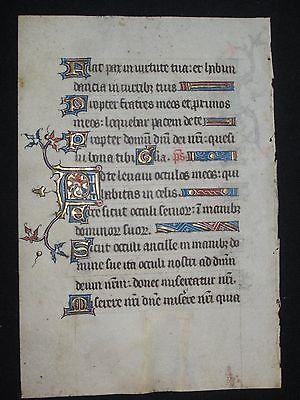 Fiat pax in virtute tua: et habun
dancia in turribȝ tuis
Propter fratres meos et primos
meos: loquebar pacem de te
Propter domū dñi dei nr̄i: quesi
ui bona tibi Gl̄ia. ps̄
Ad te leuaui occulos meos: qui
habitas in celis
Ecce sicut occuli seruor̄: ī manibȝ
dominor̄ suor̄
Sicut occuli ancille in manibȝ do
mine sue ita occuli nostri ad dn̄m
deum nr̄m: donec misereatur nr̄i
Miserere nr̄i dn̄e misēre nr̄i quia